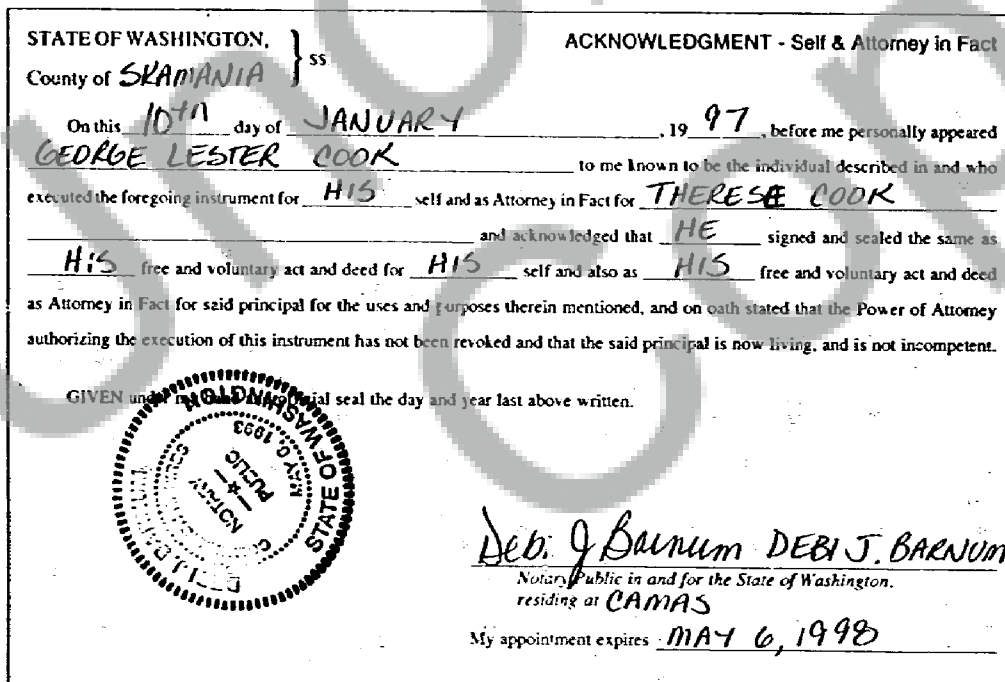 STATE OF WASHINGTON, } ss
ACKNOWLEDGMENT - Self & Attorney in Fact
County of SKAMANIA
On this 10th day of JANUARY, 19 97, before me personally appeared
GEORGE LESTER COOK to me known to be the individual described in and who
executed the foregoing instrument for HIS self and as Attorney in Fact for THERESE COOK
and acknowledged that HE signed and sealed the same as
HIS free and voluntary act and deed for HIS self and also as HIS free and voluntary act and deed
as Attorney in Fact for said principal for the uses and purposes therein mentioned, and on oath stated that the Power of Attorney
authorizing the execution of this instrument has not been revoked and that the said principal is now living, and is not incompetent.
GIVEN under seal the day and year last above written.
STATE OF WASHINGTON
NOTARY
PUBLIC
Debi J Barnum DEBI J. BARNUM
Notary Public in and for the State of Washington,
residing at CAMAS
My appointment expires MAY 6, 1998